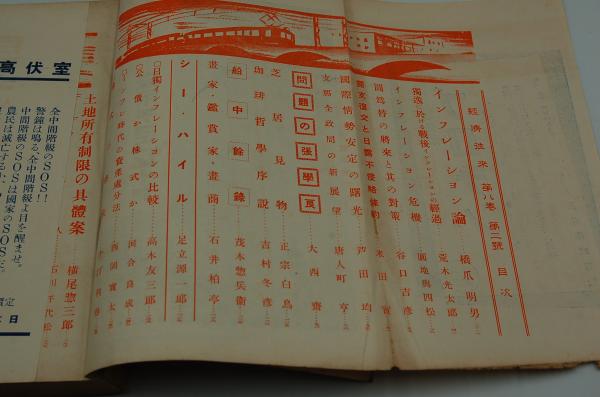 經濟往來 第八卷 第二號 目次
インフレーション論 橋爪明男
獨逸に於ける戰後インフレーションの經過 荒木光太郎
インフレーション危機 圓地與四松
圓爲替の將來と其の對策 谷口吉彥
開支復交と日露不侵略條約 米田實
國際情勢安定の曙光 芦田均
支那全政局の新展望 唐人町亨
問題の張學良 大西齋
芝居見物 正宗白鳥
珈琲哲學序說 吉村冬彥
船中餘錄 茂木惣兵衞
畫家・鑑賞家・畫商 石井柏亭
シー・ハイル 足立源一郎
日獨インフレーションの比較 高木友三郎
公債か株式か 河合良成
インフレ時代の資產處分法 西岡寬太
土地所有制限の具體案
橫尾惣三郎
石川千代松
室伏高
全中間階級のSOS!
警鐘は鳴る、全中間階級よ目を醒ませ。
中間階級のSOSは國家のSOSだ。
農民は滅亡するか、